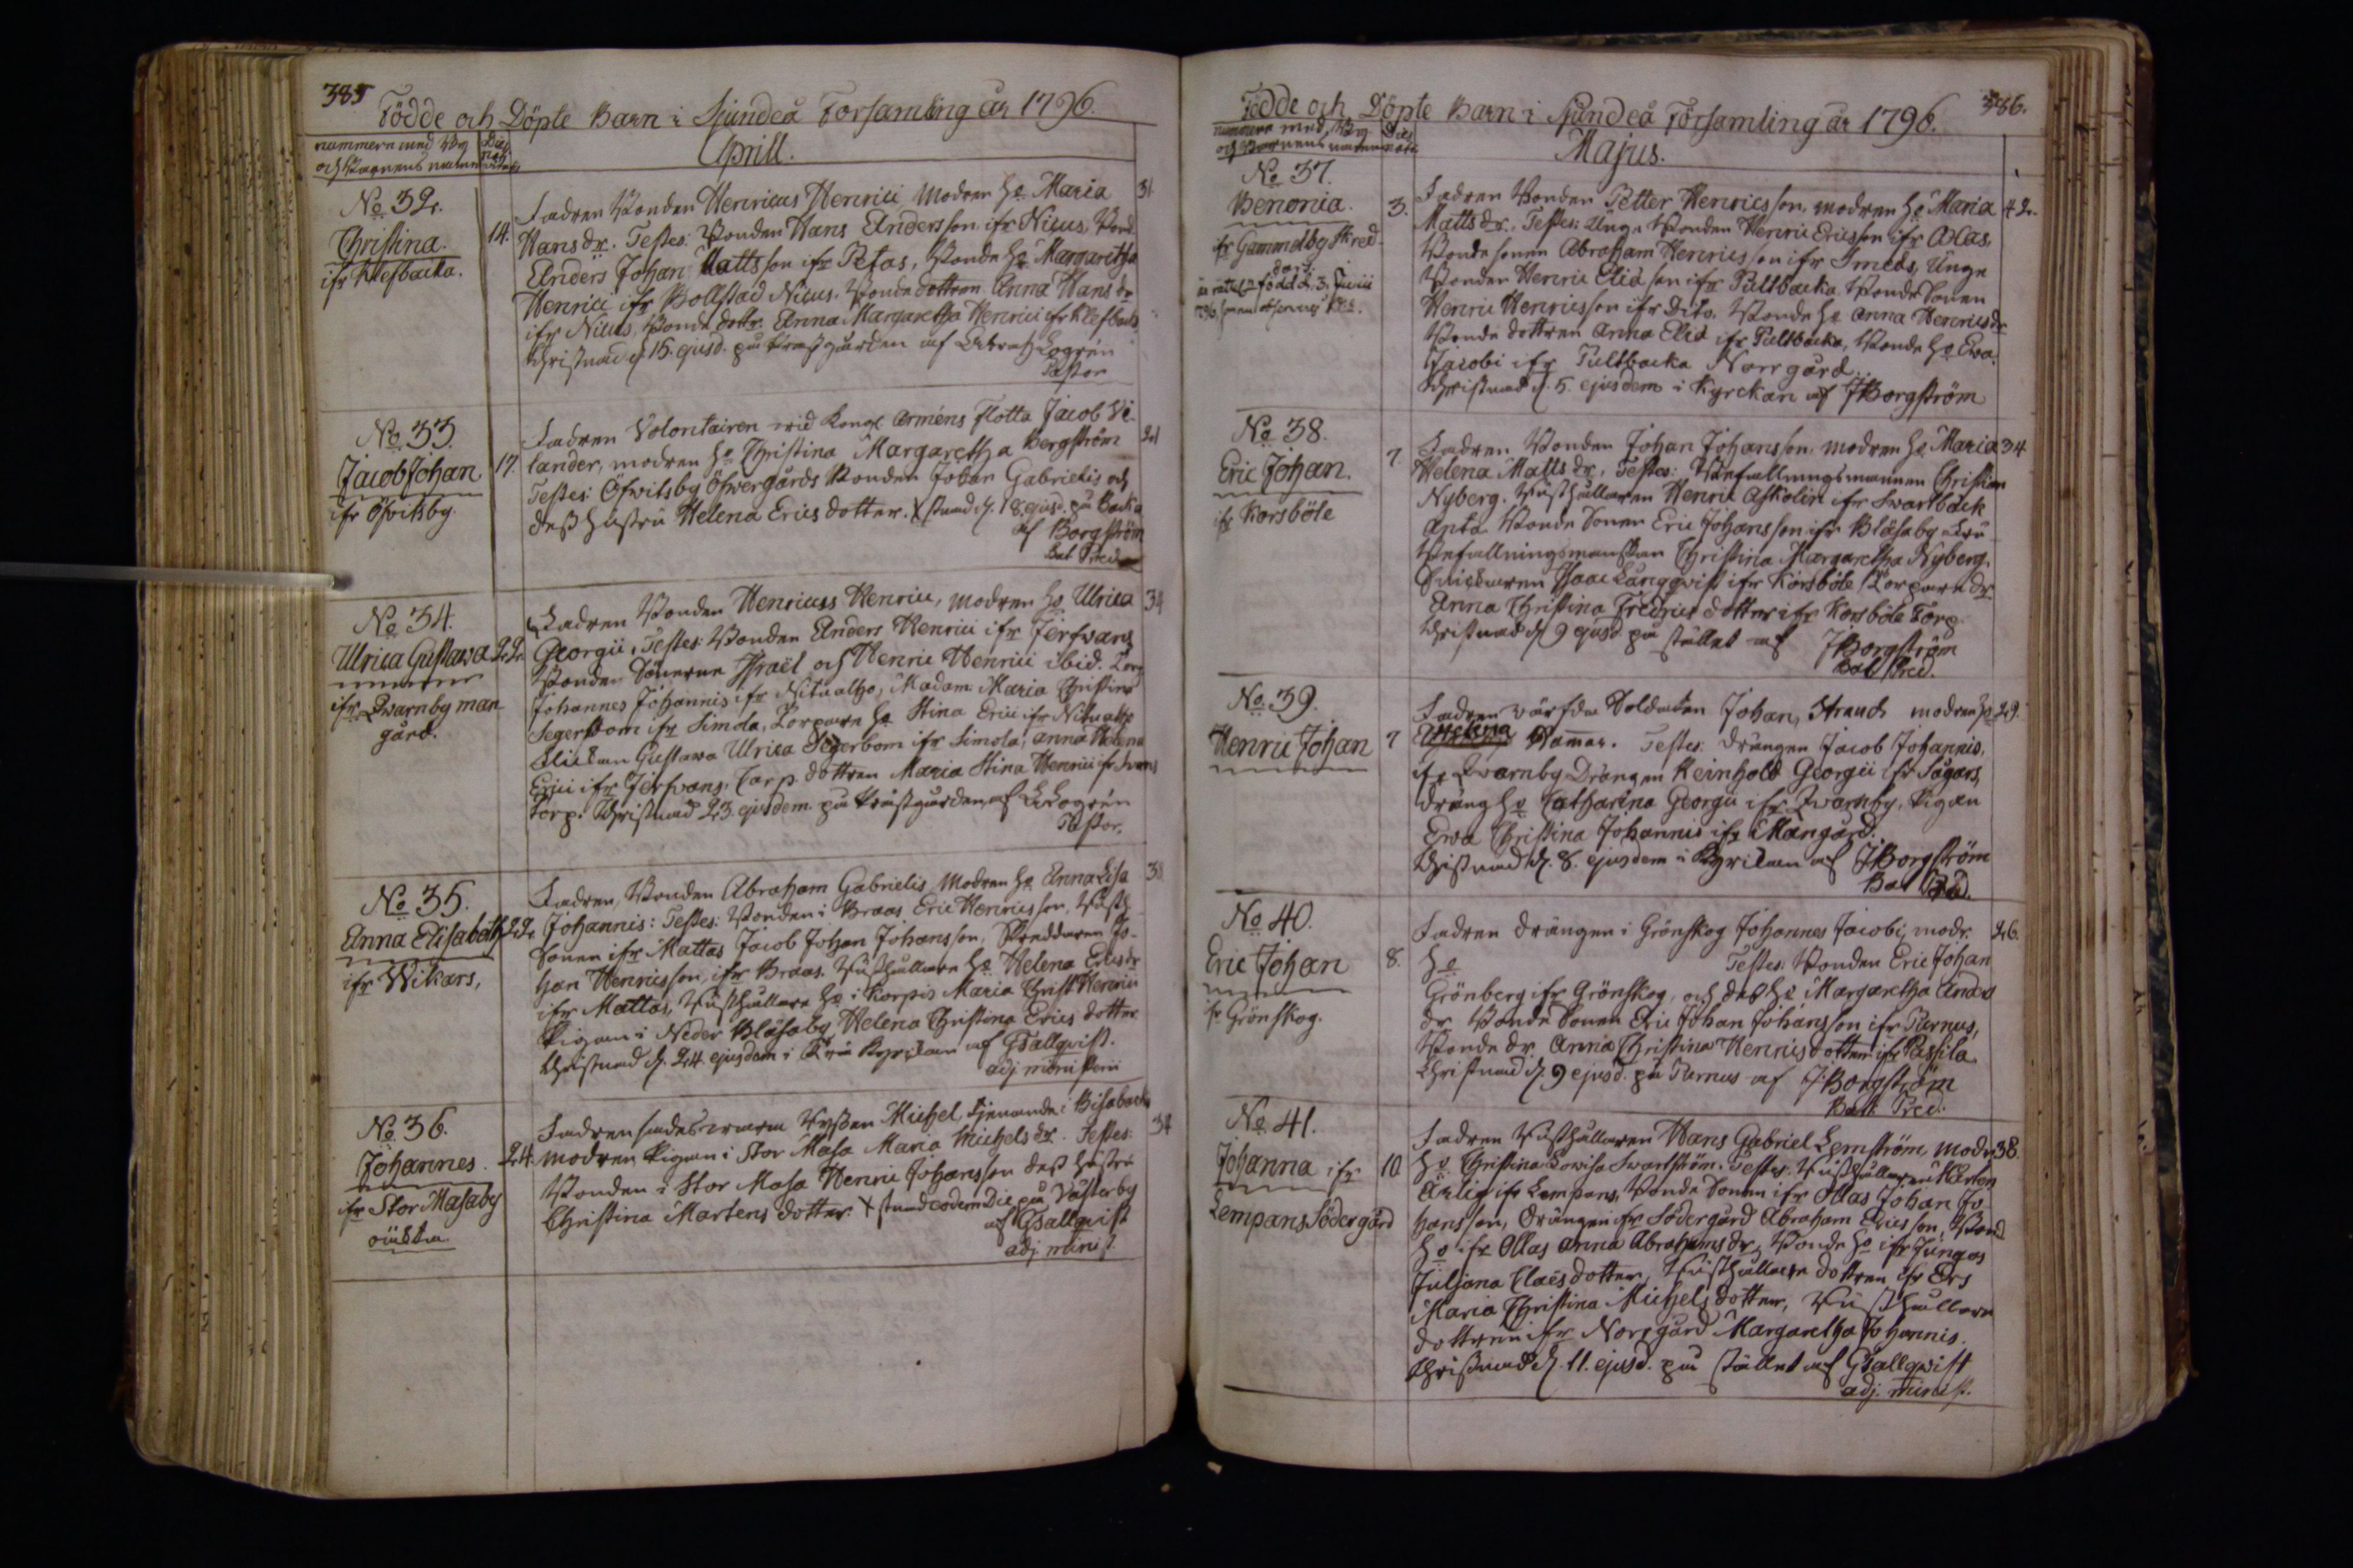 385
Födde och Döpte Barn i Sjundeå Forsamling år 1796.
nummern med
och Barnens namn
Aprill.
No 32.
Christina.
ifr Klefbacka.
14.
31
Fadren Bonden Henricus Henrici modren ho Maria
Hans dr. Testes: Bonden Hans Andersson ifr Nicus, Bond
Anders Johan Mattsson ifr Petas, Bonde ho Margaretha
Henrici ifr Bollstad Nicus. Bonde dottren Anna Hans dr
ifr Nicus, Bonde dottr. Anna Margaretha Henrici ifr Klefbacka
Christnad d. 15. ejusd. på Prästgården af Logrén
Pastor
No 33.
Jacob Johan
ifr Öfvitsby.
17.
21
Fadren Volontairen wid Kongl. Arméns Flotta Jacob Vi-
lander, modren ho Christina Margaretha Bergström
Testes: Öfwitsby Öfwergårds Bonden Johan Gabrielis och
dess hustru Helena Erics dotter. Xstnad d. 18 ejusd. på Backa
af Borgström
Bat Pred.
No 34.
Ulrica Gustava
ifr Qwarnby man
gård.
22
34
Fadren Bonden Henricuss Henric, modren ho Ulrica
Georgii, Testes: Bonden Anders Henrici ifr Jerfwans
Bonden Sönerne Israël och Henric Henrici ibid. Torp
Johannes Johannis ifr Nitualho, Madam Maria Christina
Segerbom ifr Simola, Torpare ho Stina Erici ifr Nitualho
Flickan Gustava Ulrica Segerbom ifr Simola, Anna Helena
Erici ifr Jerfvans, Torp dottren Maria Stina Henrici ifr
Torp. Christnad 23 ejusdem på Prästgården af Logrén
Pastor.
No 35.
Anna Elisabeth
ifr Wikars,
22.
38
Fadren, Bonden Abraham Gabrielis Modren ho Anna Lisa
Johannis: Testes: Bonden i Braas Eric Henricsson, Rusth
Sonen ifr Mattas Jacob Johan Johansson, Skreddaren Jo-
han Henricsson ifr Braas. Rusthållare ho Helena Erics dr
ifr Mattas, Rusthållare ho i Korpis Maria Christ Henrici
Pigan i Neder Blåsaby Helena Christina Erics dotter
Christnad d. 24. ejusdem i Kyrckan af GSallqvist.
adj ministerii
No 36.
Johannes.
ifr Stor Masaby
24.
34
Fadren Ryssen Michel tjenande i Bisabacka
modren Pigan i Stor Masa Maria Michels dr. Testes:
Bonden i Stor Masa Henric Johansson dess hustru
Christina Martens dotter. Xstnad eodem Die på Västerby
af GSallqvist
adj. minist.
386.
Födde och Döpte Barn i Sjundeå Församling år 1796.
nummern med
och Barnens namn
Majus.
No 37.
Benonia.
ifr Gammelby Skred
född d. 3. Junii
3.
42.
Fadren Bonden Petter Henricsson, modren ho Maria
Matts dr. Testes: Unge Bonden Henric Ericsson ifr Ollas,
Bonde sonen Abraham Henricsson ifr Smeds, Unge
Bonden Henric Eliæson ifr Pultbacka Bonde Sonen
Henric Henricsson ifr Dito. Bonde ho Anna Henrics dr
Bonde dottren Anna Eliæ ifr Pultbacka, Bonde ho Ewa
Jacobi ifr Tultbacka Norrgård.
Christnad d. 5. ejusdem i Kyrckan af JBorgström
No 38.
Eric Johan.
ifr Korsböle
7
34
Fadren Bonden Johan Johansson, modren ho Maria
Helena Matts dr, Testes: Befallningsmannen Christian
Nyberg. Rusthållaren Henric Askolin ifr Swartback
Bonde Sonen Eric Johansson ifr Blåsaby Fru
Befallningsmanskan Christina Margaretha Nyberg.
Isaac Långqvist ifr Korsböle, Torpare dr
Anna Christina Fredrics dotter ifr Korsböle Torp
Christnad d. 9 ejusd. på stället af JBorgström
Bat Pred.
No 39.
Henric Johan
7
29.
Fadren värfda Soldaten Johan Strand modren ho
Helena Hamar. Testes: drängen Jacob Johannis,
ifr Qvarnby Drängen Reinhold Georgii ifr Sågars,
dräng ho Catharina Georgii ifr Qvarnby, Pigan
Ewa Christina Johannis ifr Mangård.
Christnad d. 8. ejusdem i Kyrckan af JBorgström
Bat Pred.
No 40.
Eric Johan
ifr Grönskog.
8.
26.
Fadren drängen i Grönskog Johannes Jacobi, modr.
ho Testes. Bonden Eric Johan
Grönberg ifr Grönskog, och dess ho Margaretha Anders
dr Bonde Sonen Eric Johan Johansson ifr Purnus,
Bonde dr. Anna Christina Henrics dotter ifr Passila
Christnad d. 9 ejusd. på Purnus af JBorgström
Batt. Pred.
No 41.
Johanna ifr
Lempans Södergård
10
38.
Fadren Rusthållaren Hans Gabriel Lemström, modr
ho Christina Lovisa Swartström. Testes: Rusthållaren Mårten
Ärlig ifr Lempans, Bonde Sonen ifr Ollas Johan Jo-
hansson, Drängen ifr Södergård Abraham Ericsson, Bond
ho ifr Ollas Anna Abrahams dr, Bonde ho ifr Jungas
Juljana Claës dotter, Rusthållare dottren ifr Ers
Maria Christina Michels dotter, Rusthållare
dottren ifr Norrgård Margaretha Johannis.
Christnad d. 11. ejusd. på stället af GSallqvist
adj. minist.